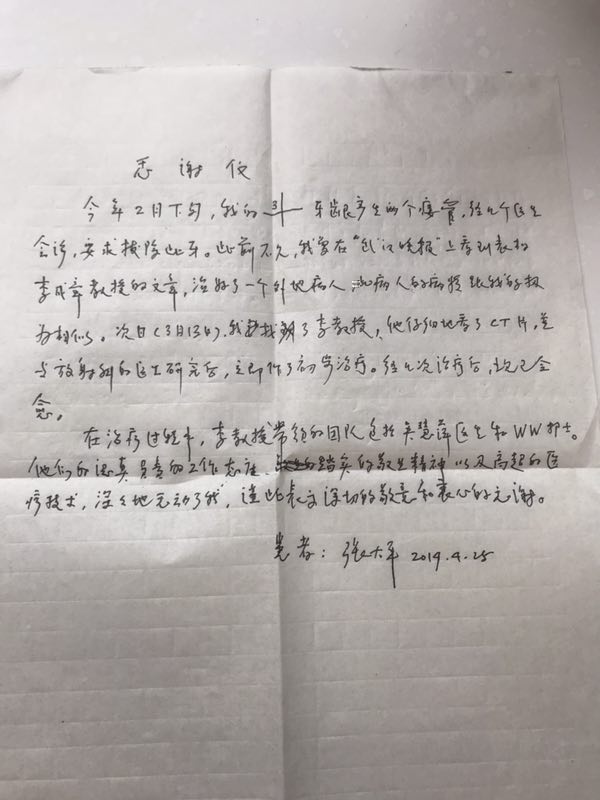 感谢信
今年2月下旬，我的 3 牙龈产生两个瘘管，经几个医生
会诊，要求拔除此牙。此前不久，我曾在“武汉晚报”上看到表扬
李成章教授的文章，治好了一个外地病人，此病人的病情跟我的极
为相似。次日（3月13日），我找到了李教授，他仔细地看了CT片，并
与放射科的医生研究后，立即作了初步治疗。经几次治疗后，现已全
愈。
在治疗过程中，李教授带领的团队包括吴慧萍医生和WW护士。
他们的认真负责的工作态度 踏实的敬业精神以及高超的医
疗技术，深深地感动了我，谨此表示深切的敬意和衷心的感谢。
患者：张大军 2019.4.25